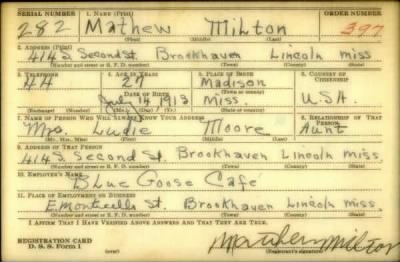 SERIAL NUMBER 1. NAME (Print) ORDER NUMBER
282 Mathew Milton 397
(First) (Middle) (Last)
2. ADDRESS (Print)
414 S Second St. Brookhaven Lincoln miss
(Number and street or R. F. D. number) (Town) (County) (State)
3. TELEPHONE 4. AGE IN YEARS 5. PLACE OF BIRTH 6. COUNTRY OF CITIZENSHIP
44 27 Madison
DATE OF BIRTH (Town or county)
July 14 1913 Miss. U.S.A.
(Exchange) (Number) (Mo.) (Day) (Yr.) (State or country)
7. NAME OF PERSON WHO WILL ALWAYS KNOW YOUR ADDRESS 8. RELATIONSHIP OF THAT PERSON
Mrs. Ludie Moore Aunt
(Mr., Mrs., Miss) (First) (Middle) (Last)
9. ADDRESS OF THAT PERSON
414 S. Second St. Brookhaven Lincoln miss.
(Number and street or R. F. D. number) (Town) (County) (State)
10. EMPLOYER'S NAME
Blue Goose Café
11. PLACE OF EMPLOYMENT OR BUSINESS
E. Monticello St. Brookhaven Lincoln miss
(Number and street or R. F. D. number) (Town) (County) (State)
I AFFIRM THAT I HAVE VERIFIED ABOVE ANSWERS AND THAT THEY ARE TRUE.
REGISTRATION CARD
D. S. S. Form 1 Mathew Milton
(Registrant's signature)